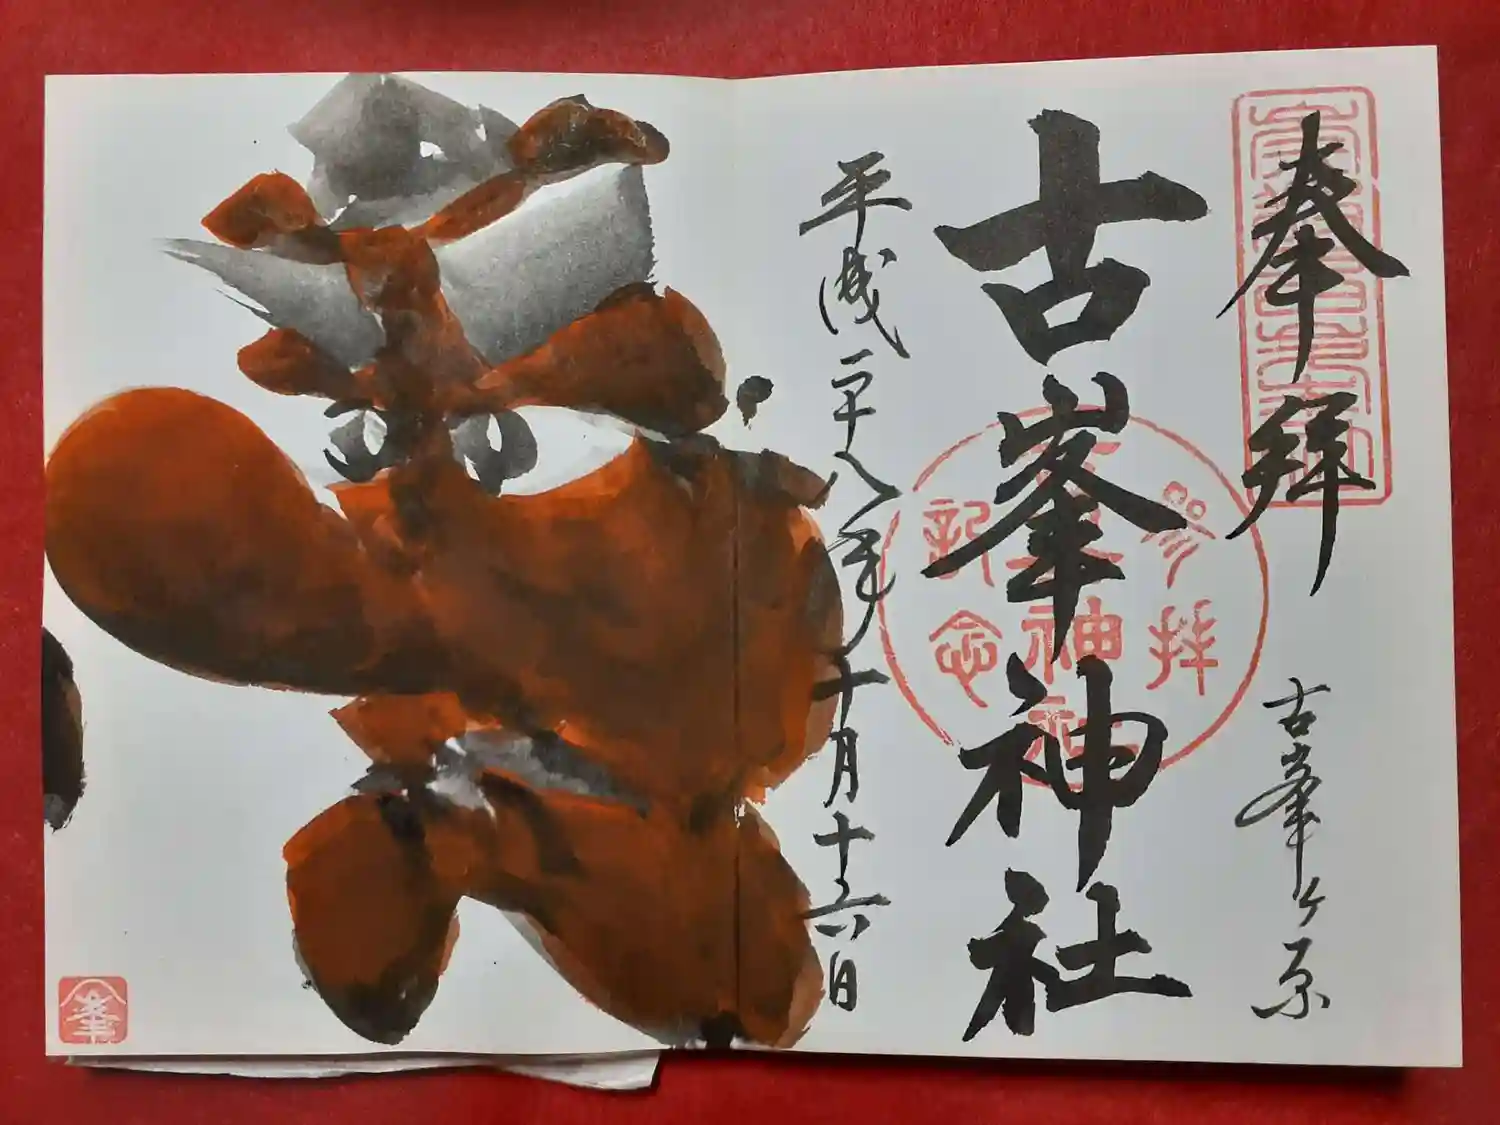 奉拝
古峯ヶ原
古峯神社
参拝
神社
記念
平成二十八年十月十六日
峯